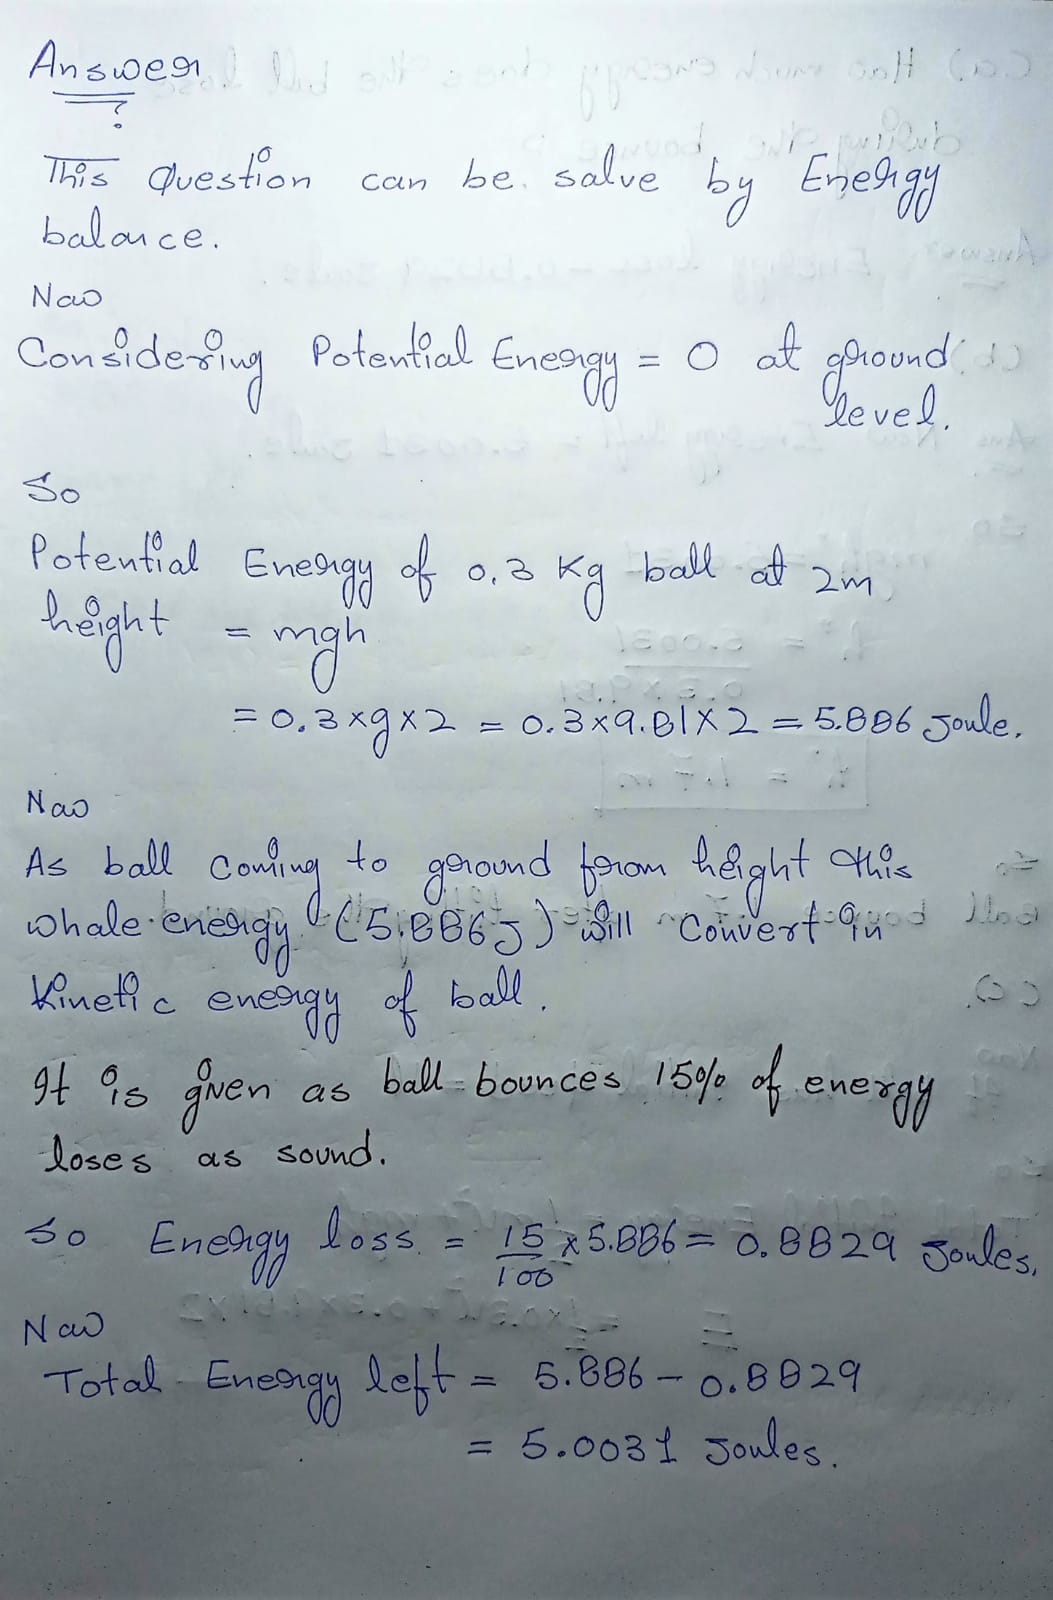 Answer
?
This Question can be salve by Energy
balance.
Now
Considering Potential Energy = 0 at ground
level.
So
Potential Energy of 0.3 Kg ball at 2m
height = mgh
= 0.3 x g x 2 = 0.3 x 9.81 x 2 = 5.886 Joule.
Now
As ball coming to ground from height this
whole energy (5.886 J) will Convert in
Kinetic energy of ball.
It is given as ball bounces 15% of energy
loses as sound.
So Energy loss = 15/100 x 5.886 = 0.8829 Joules.
Now
Total Energy left = 5.886 - 0.8829
= 5.0031 Joules.